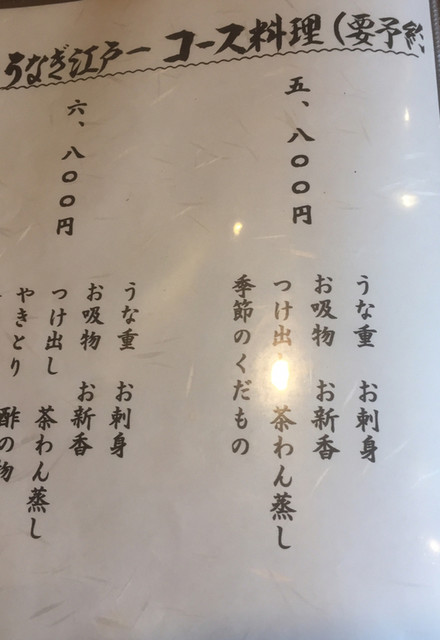 うなぎ江戸一 コース料理(要予約
五、八〇〇円
うな重 お刺身
お吸物 お新香
つけ出し 茶わん蒸し
季節のくだもの
六、八〇〇円
うな重 お刺身
お吸物 お新香
つけ出し 茶わん蒸し
やきとり 酢の物